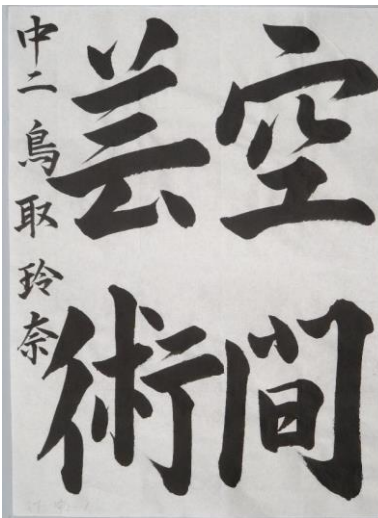 空間
芸術
中二 鳥取 玲奈